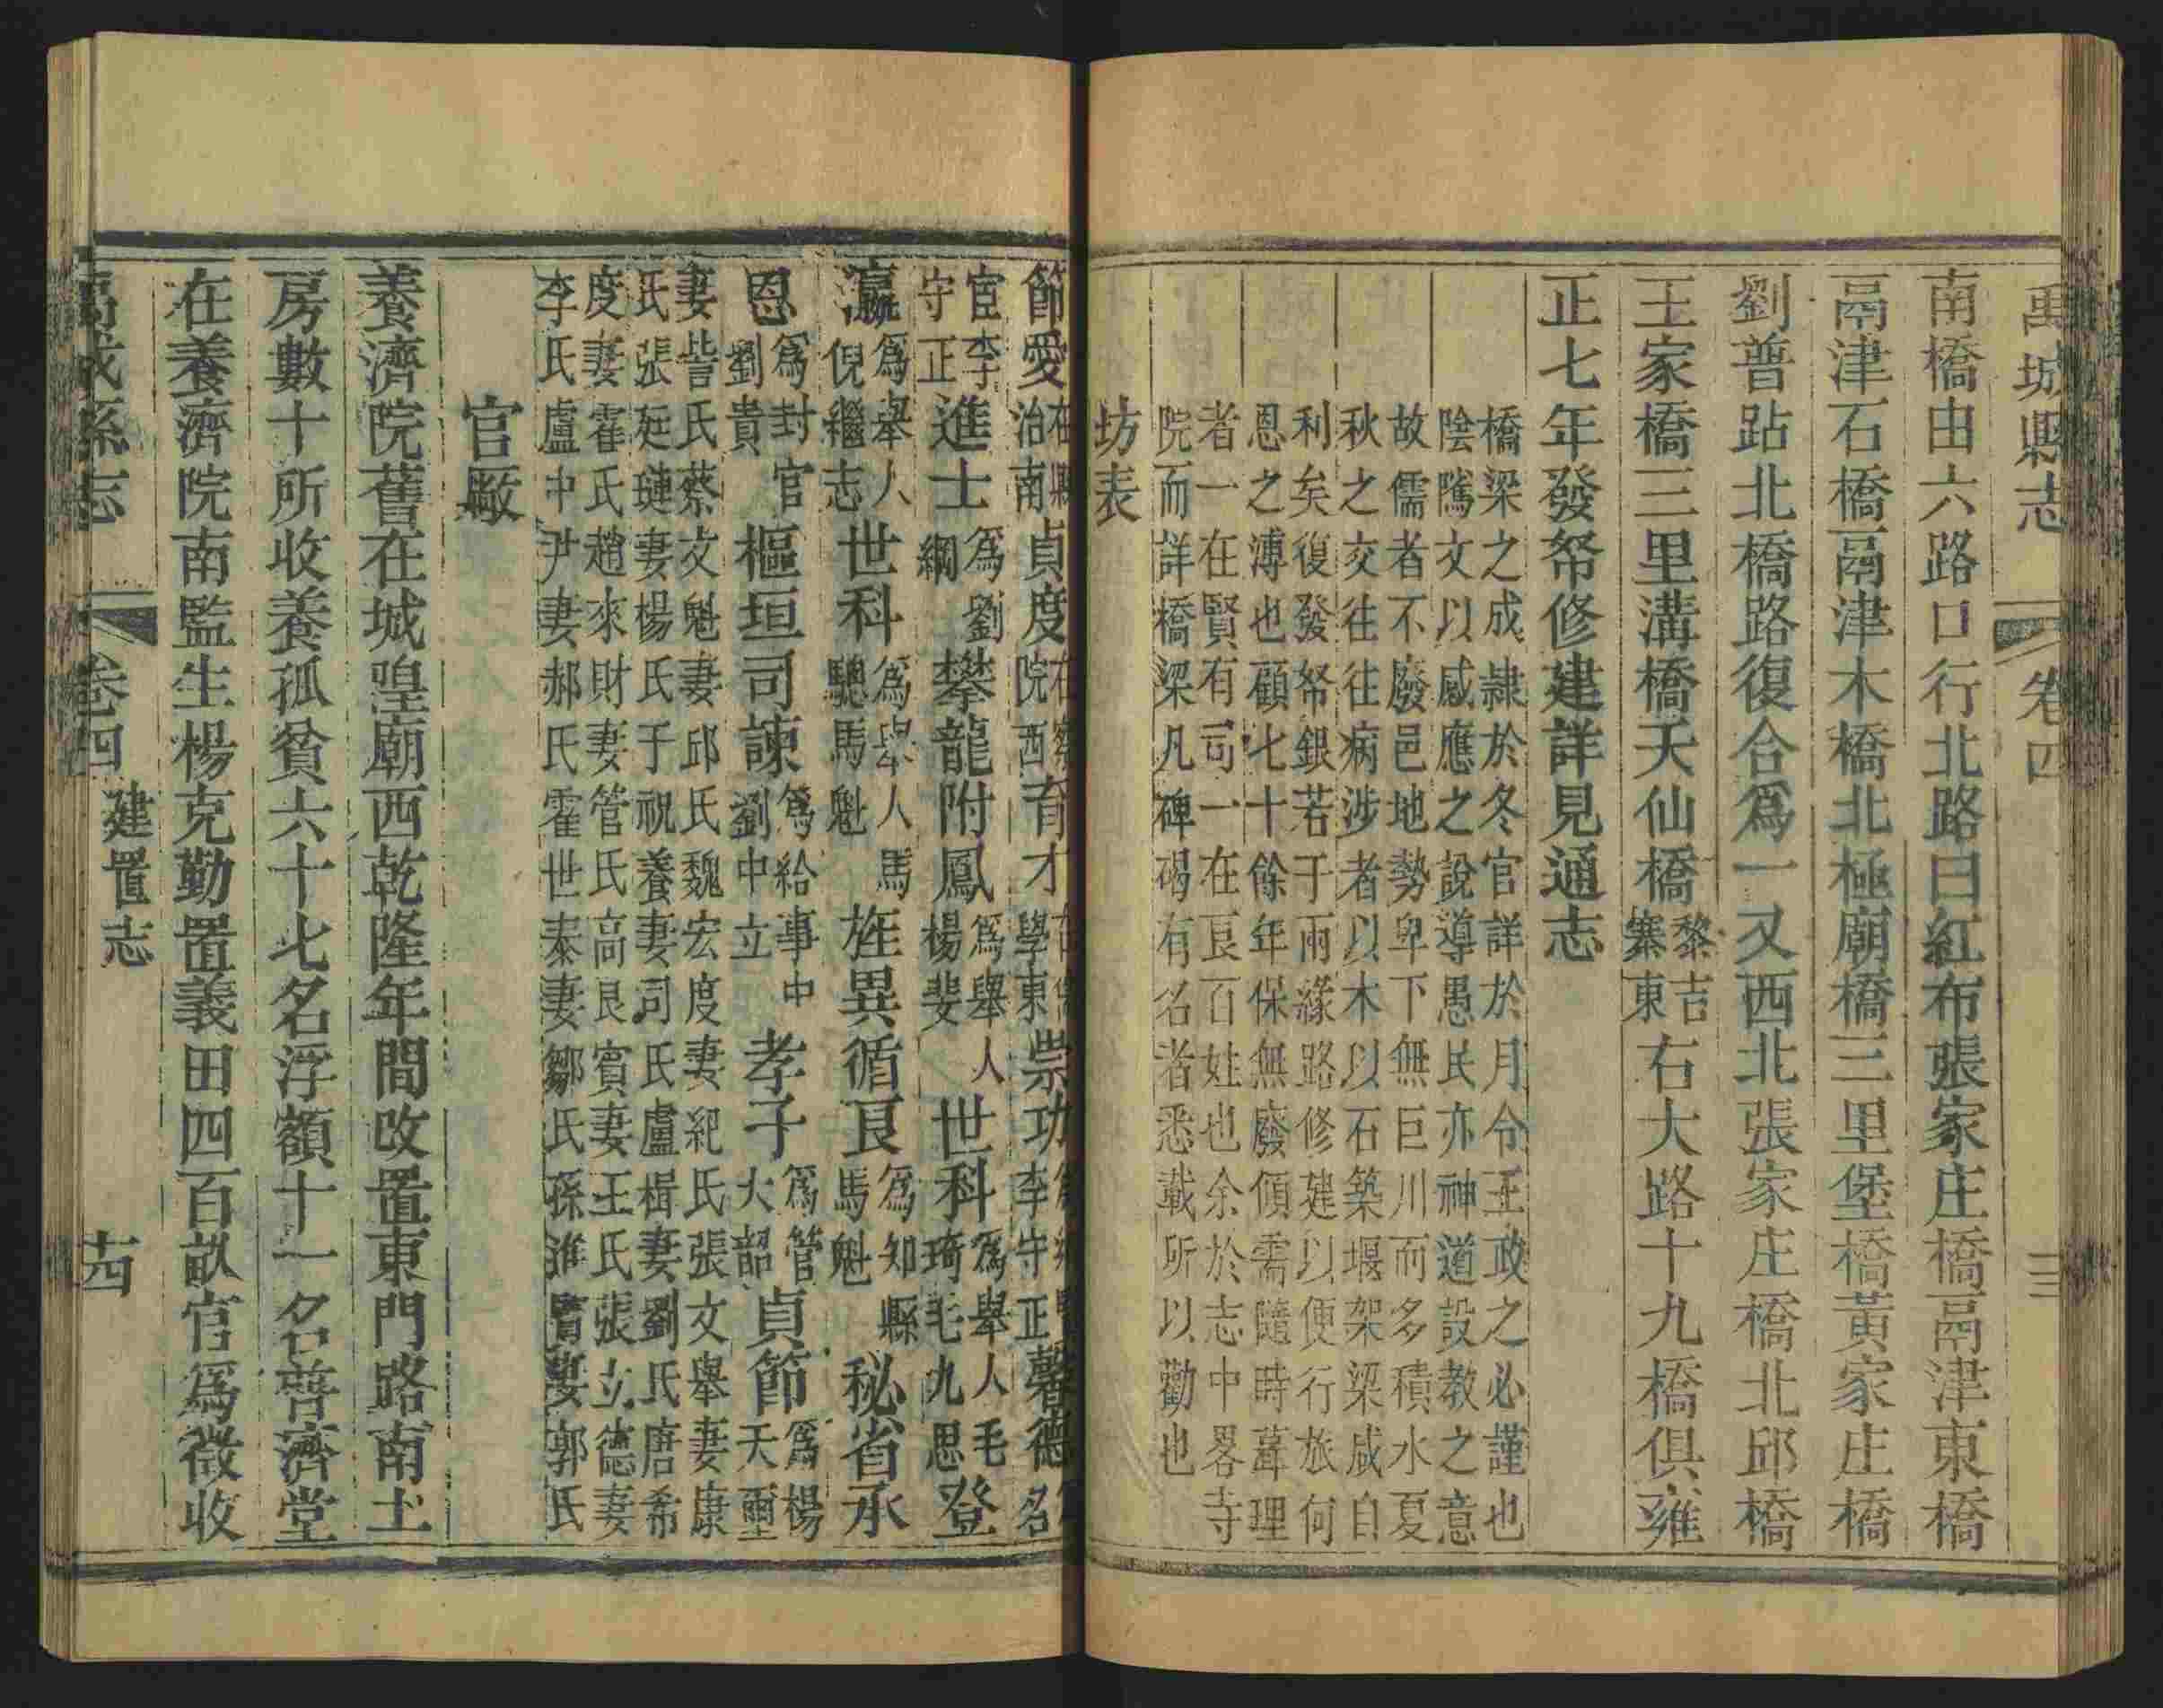 禹城縣志　卷四　十三
南橋由六路口行北路曰紅布張家庄橋鬲津東橋
鬲津石橋鬲津木橋北極廟橋三里堡橋黃家庄橋
劉普跕北橋路復合爲一又西北張家庄橋北邱橋
王家橋三里溝橋天仙橋黎吉寨東右大路十九橋俱雍
正七年發帑修建詳見通志
橋梁之成隷於冬官詳於月令王政之必謹也
陰隲文以感應之說導愚民亦神道設教之意
故儒者不廢邑地勢卑下無巨川而多積水夏
秋之交往往病涉者以木以石築堰架梁咸自
利矣復發帑銀若于兩緣路修建以便行旅何
恩之溥也顧七十餘年保無廢傾需隨時葺理
者一在賢有司一在良百姓也余於志中畧寺
院而詳橋梁凡碑碣有名者悉載所以勸也
坊表
節愛在縣治南貞度在察院西育才在儒學東崇功李守正馨德名
宦李守正進士爲劉綱攀龍附鳳爲舉人楊斐世科爲舉人毛琦毛九思登
瀛爲舉人倪繼志世科爲舉人馬驄馬魁旌異循良爲知縣馬魁秘省承
恩爲封官劉貴樞垣司諫爲給事中劉中立孝子爲管大韶貞節爲楊天璽
妻訾氏蔡文魁妻邱氏魏宏度妻紀氏張文舉妻康
氏張廷璉妻楊氏于祝養妻司氏盧楫妻劉氏唐希
度妻霍氏趙來財妻管氏高良賓妻王氏張立德妻
李氏盧中尹妻郝氏霍世泰妻鄒氏孫進賢妻郭氏
官厰
養濟院舊在城隍廟西乾隆年間改置東門路南土
房數十所收養孤貧六十七名浮額十一名普濟堂
在養濟院南監生楊克勤置義田四百畝官爲徵收
禹城縣志　卷四　建置志　十四